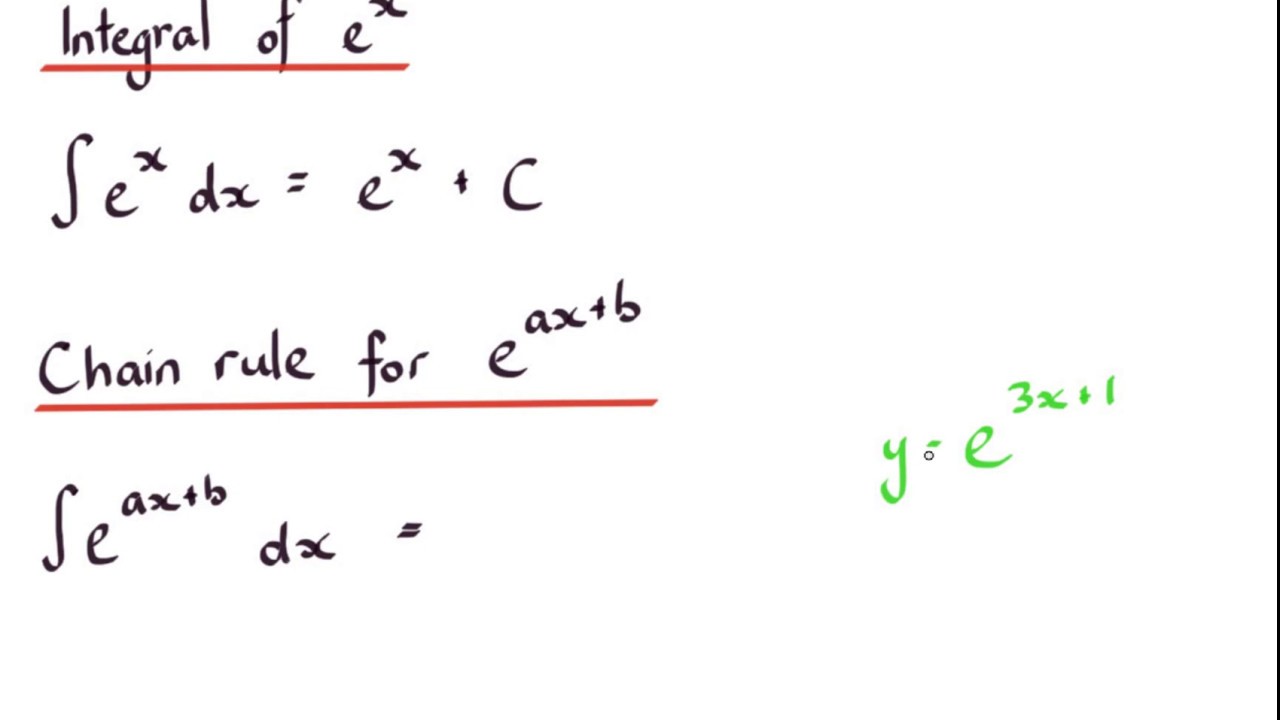 Integral of e^x
∫e^x dx = e^x + C
Chain rule for e^{ax+b}
y = e^{3x+1}
∫e^{ax+b} dx =